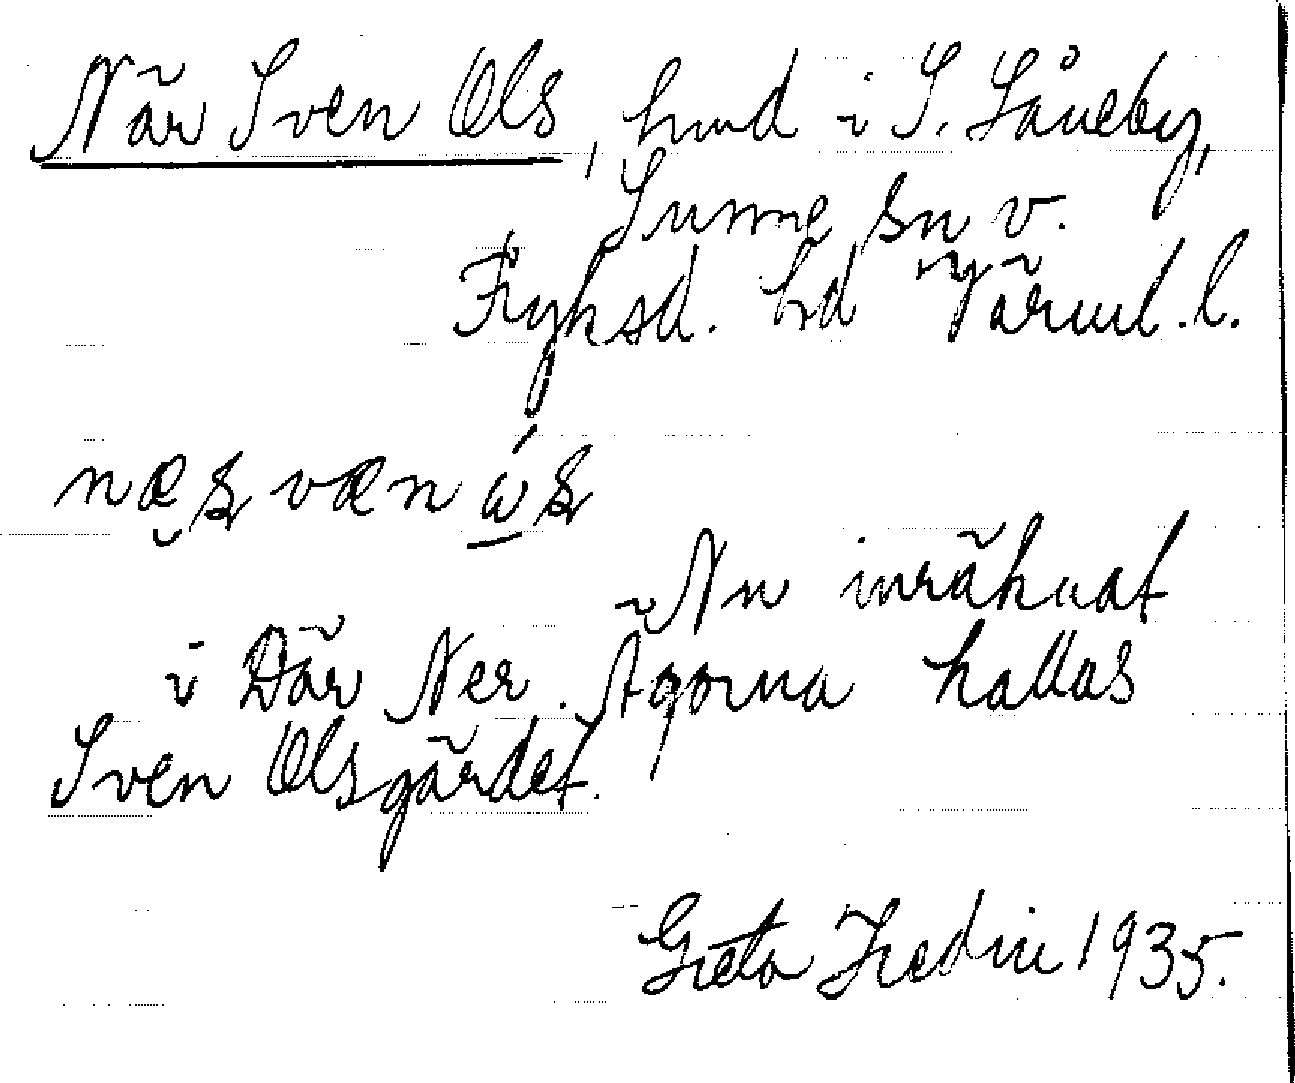 När Sven Ols, hmd i S. Låneby,
Sunne sn v.
Fryksd. hd Värml. l.
næʂ væn ώʂ
Nu inräknat
i Där Ner. Ägorna kallas
Sven Olsgärdet.
Greta Hedin 1935.